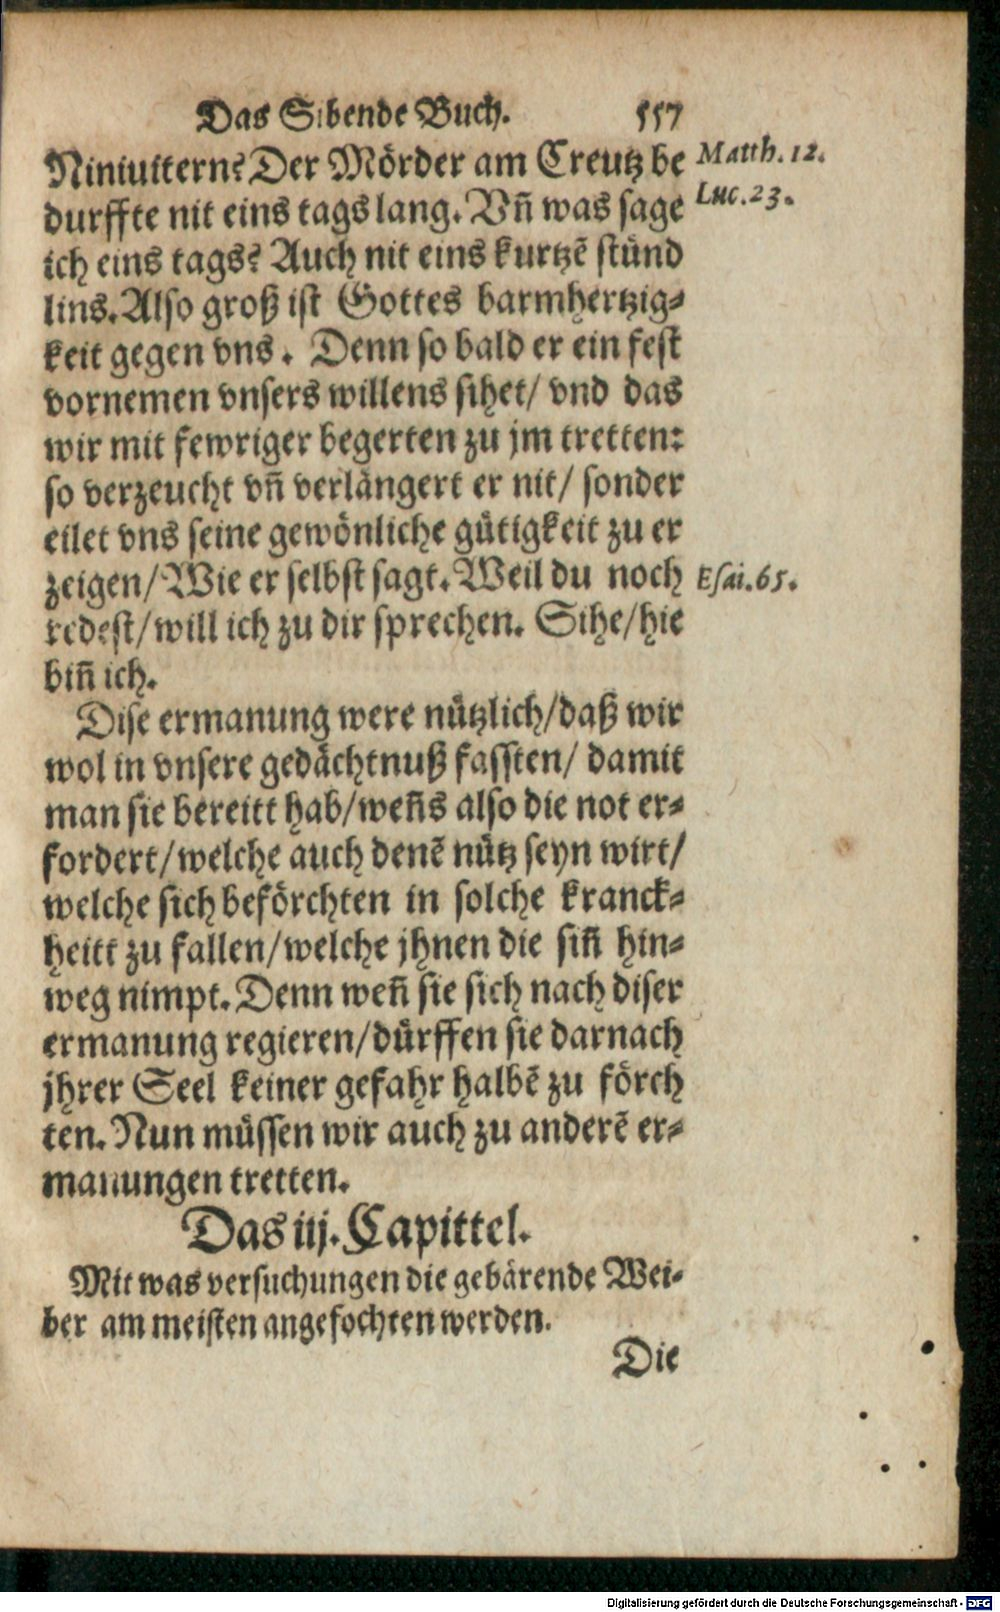 Das Sibende Buch. 557
Niniuitern? Der Mörder am Creutz be
Matth. 12.
durffte nit eins tags lang. Vñ was sage
Luc. 23.
ich eins tags? Auch nit eins kurtzẽ stünd
lins. Also groß ist Gottes barmhertzig⸗
keit gegen vns. Denn so bald er ein fest
vornemen vnsers willens sihet/ vnd das
wir mit fewriger begerten zu jm tretten:
so verzeucht vñ verlängert er nit/ sonder
eilet vns seine gewönliche gütigkeit zu er
zeigen/ Wie er selbst sagt. Weil du noch
Esai. 65.
redest/ will ich zu dir sprechen. Sihe/ hie
biñ ich.
Dise ermanung were nützlich/ daß wir
wol in vnsere gedächtnuß fassten/ damit
man sie bereitt hab/ weñs also die not er⸗
fordert/ welche auch denẽ nütz seyn wirt/
welche sich beförchten in solche kranck⸗
heitt zu fallen/ welche jhnen die siñ hin⸗
weg nimpt. Denn weñ sie sich nach diser
ermanung regieren/ dürffen sie darnach
jhrer Seel keiner gefahr halbẽ zu förch
ten. Nun müssen wir auch zu anderẽ er⸗
manungen tretten.
Das iij. Capittel.
Mit was versuchungen die gebärende Wei⸗
ber am meisten angefochten werden.
Die
Digitalisierung gefördert durch die Deutsche Forschungsgemeinschaft - DFG